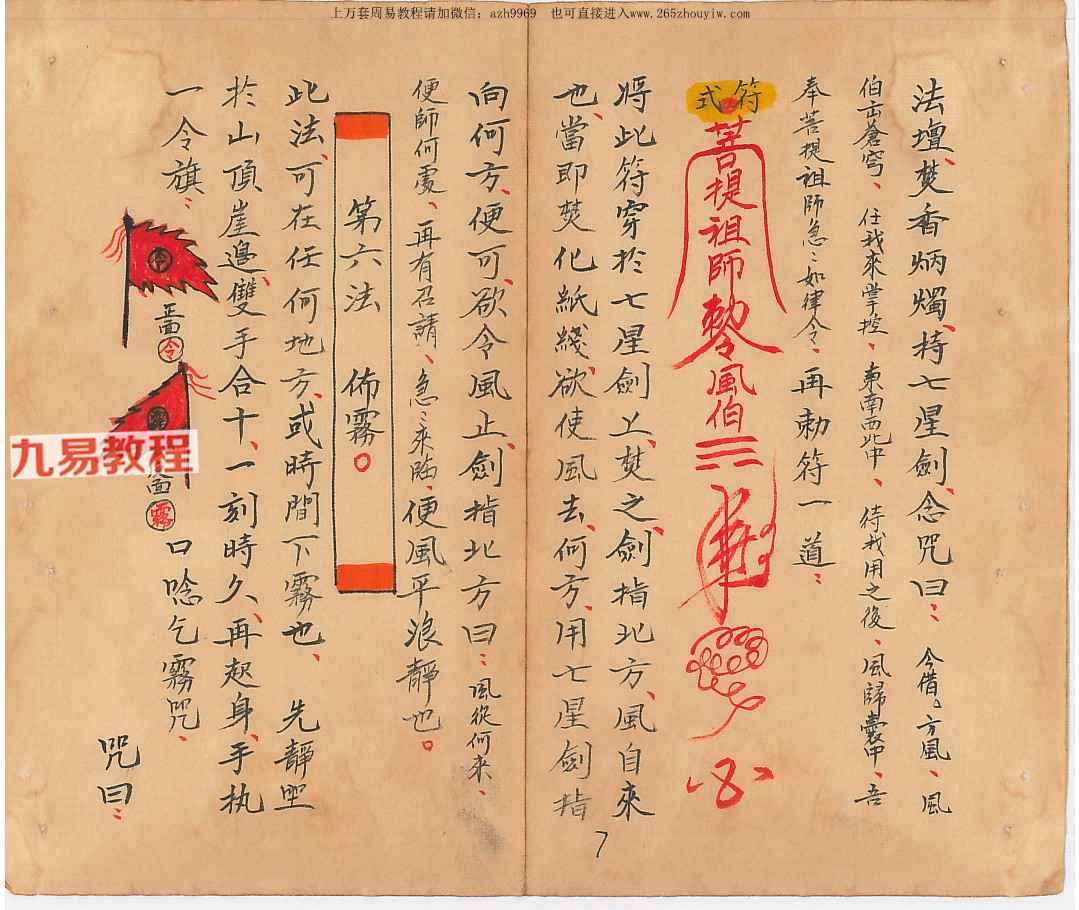 上万套周易教程请加微信：azh9969 也可直接进入www.265zhouyiw.com
法壇、焚香炳燭、持七星劍、念咒曰：今借。方風、風
伯出蒼穹、任我來掌控、東南西北中、待我用之後、風歸囊中、吾
奉菩提祖師急：如律令、再勅符一道：
符式
菩提祖師勅令風伯
將此符穿於七星劍上、焚之、劍指北方、風自來
也、當即焚化紙錢、欲使風去、何方、用七星劍指
向何方、便可、欲令風止、劍指北方曰：風從何來、
便歸何處、再有召請、急：來臨、便風平浪靜也。
7
第六法 佈霧。
此法、可在任何地方、或時間下霧也、先靜坐
於山頂崖邊、雙手合十、一刻時久、再起身、手执
一令旗：
令
正面令
九易教程
面霧
口唸乞霧咒、
咒曰：